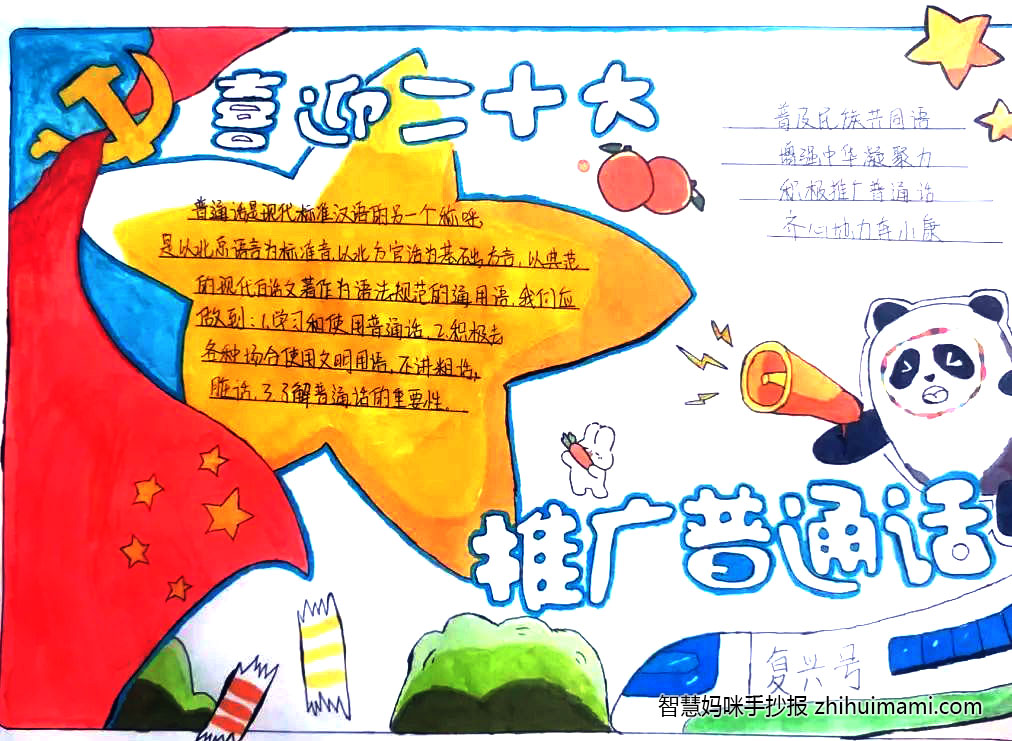 喜迎二十大
普及民族共同语
增强中华凝聚力
积极推广普通话
齐心协力奔小康
普通话是现代标准汉语的另一个称呼,
是以北京语言为标准音,以北方官话为基础方言,以典范
的现代白话文著作为语法规范的通用语,我们应
做到:1.学习和使用普通话 2.积极去
各种场合使用文明用语,不讲粗话,
脏话 3.了解普通话的重要性.
推广普通话
复兴号
智慧妈咪手抄报 zhihuimami.com